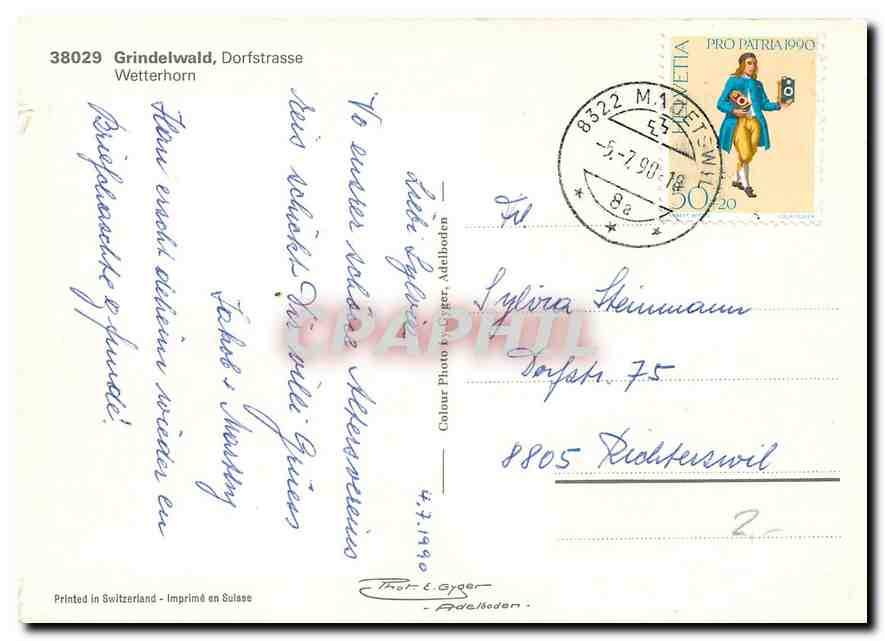 38029 Grindelwald, Dorfstrasse
Wetterhorn
4.7.1990
Liebi Sylvia
Vo eusrer schöne Altersvereins
reis schickt Dir villi Grüess
Jakob +
Hän erscht deheim wieder en
Briefchaschte gfunde!
Colour Photo by Gyger, Adelboden
HELVETIA
PRO PATRIA 1990
50+20
8322 M
-5.-7.90-18
8a
Frl.
Sylvia Steinmann
Dorfstr. 75
8805 Richterswil
2.-
Phot. E. Gyger
- Adelboden -
Printed in Switzerland - Imprimé en Suisse
CPAPHIL